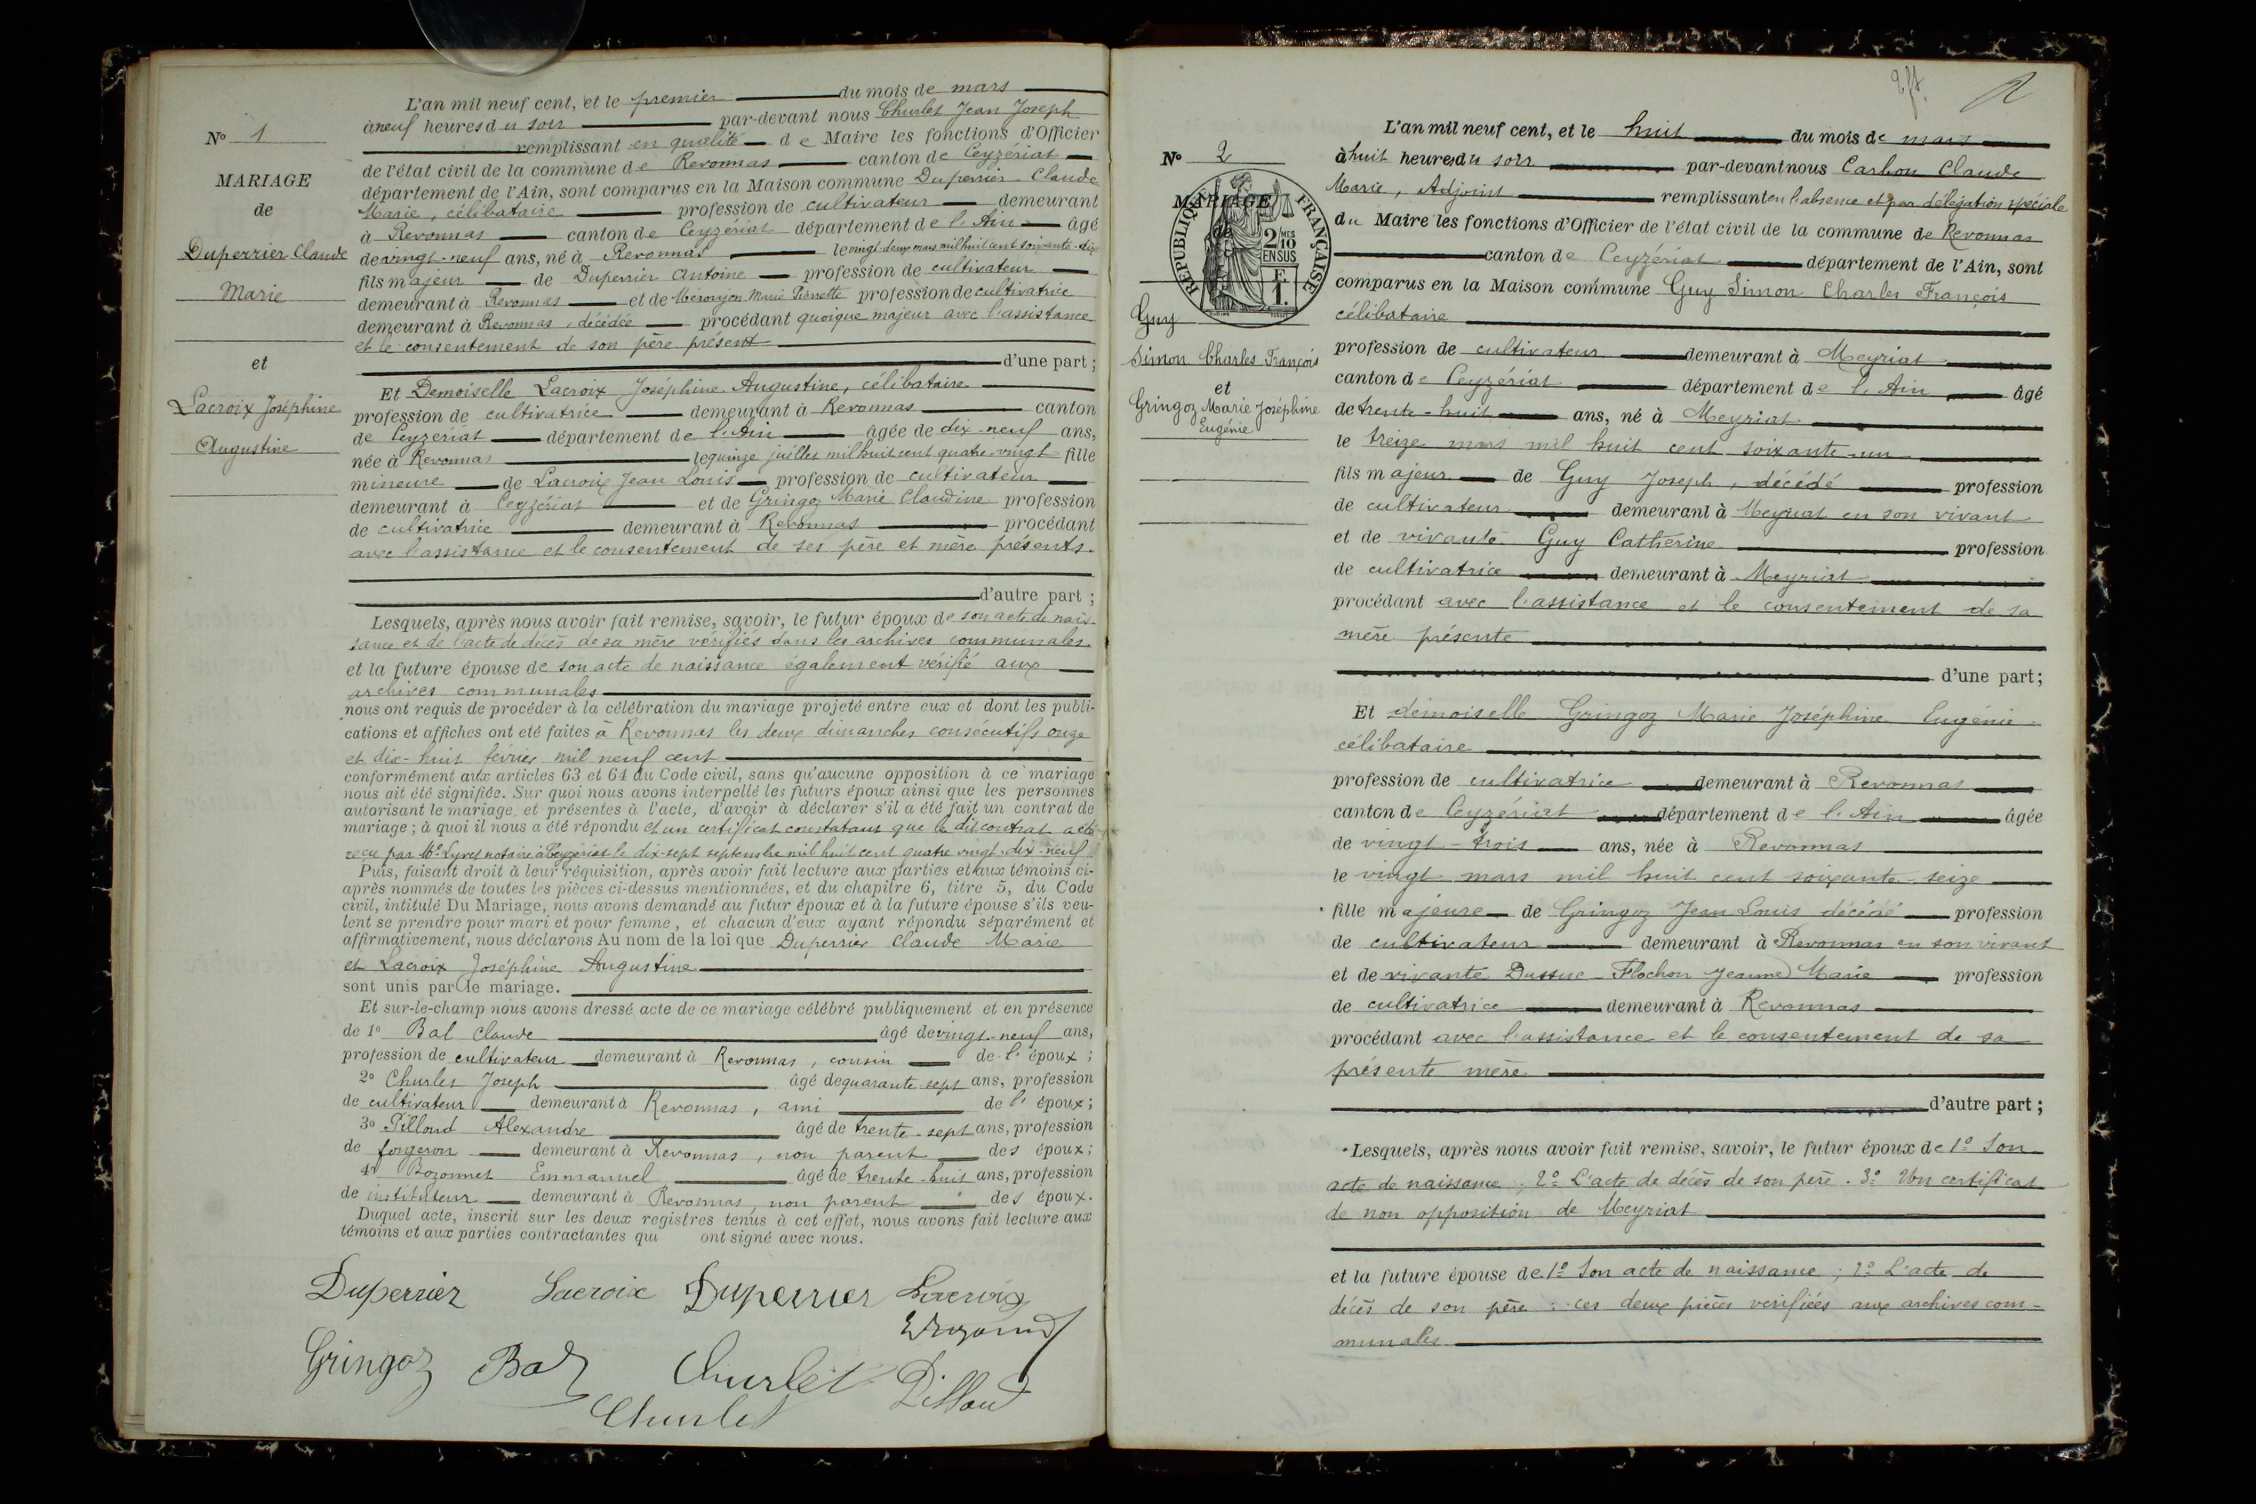 L'an mil neuf cent, et le premier du mois de mars
à neuf heures du soir par-devant nous Churlet Jean Joseph
remplissant en qualité de Maire les fonctions d'Officier
de l'état civil de la commune de Revonnas canton de Ceyzériat
département de l'Ain, sont comparus en la Maison commune Duperrier Claude
Marie, célibataire profession de cultivateur demeurant
à Revonnas canton de Ceyzériat département de l'Ain âgé
de vingt-neuf ans, né à Revonnas le vingt deux mars mil huit cent soixante-dix
fils majeur de Duperrier Antoine profession de cultivateur
demeurant à Revonnas et de Marie Pierrette profession de cultivatrice
demeurant à Revonnas, décédée procédant quoique majeur avec l'assistance
et le consentement de son père présent
d'une part ;
Et Demoiselle Lacroix Joséphine Augustine, célibataire
profession de cultivatrice demeurant à Revonnas canton
de Ceyzériat département de l'Ain âgée de dix-neuf ans,
née à Revonnas le quinze juillet mil huit cent quatre-vingt fille
mineure de Lacroix Jean Louis profession de cultivateur
demeurant à Ceyzériat et de Gringoz Marie Claudine profession
de cultivatrice demeurant à Revonnas procédant
avec l'assistance et le consentement de ses père et mère présents.
d'autre part ;
Lesquels, après nous avoir fait remise, savoir, le futur époux de son acte de nais-
sance et de l'acte de décès de sa mère vérifiés dans les archives communales
et la future épouse de son acte de naissance également vérifié aux
archives communales
nous ont requis de procéder à la célébration du mariage projeté entre eux et dont les publi-
cations et affiches ont été faites à Revonnas les deux dimanches consécutifs onze
et dix-huit février mil neuf cent
conformément aux articles 63 et 64 du Code civil, sans qu'aucune opposition à ce mariage
nous ait été signifiée. Sur quoi nous avons interpellé les futurs époux ainsi que les personnes
autorisant le mariage, et présentes à l'acte, d'avoir à déclarer s'il a été fait un contrat de
mariage ; à quoi il nous a été répondu et un certificat constatant que le dit contrat a été
reçu par Me notaire à Ceyzériat le dix-sept septembre mil huit cent quatre vingt-dix-neuf
Puis, faisant droit à leur réquisition, après avoir fait lecture aux parties et aux témoins ci-
après nommés de toutes les pièces ci-dessus mentionnées, et du chapitre 6, titre 5, du Code
civil, intitulé Du Mariage, nous avons demandé au futur époux et à la future épouse s'ils veu-
lent se prendre pour mari et pour femme, et chacun d'eux ayant répondu séparément et
affirmativement, nous déclarons Au nom de la loi que Duperrier Claude Marie
et Lacroix Joséphine Augustine
sont unis par le mariage.
Et sur-le-champ nous avons dressé acte de ce mariage célébré publiquement et en présence
de 1° Bal Claude âgé de vingt-neuf ans,
profession de cultivateur demeurant à Revonnas, cousin de l'époux ;
2° Churlet Joseph âgé de quarante-sept ans, profession
de cultivateur demeurant à Revonnas, ami de l'époux ;
3° Pilloud Alexandre âgé de trente-sept ans, profession
de forgeron demeurant à Revonnas, non parent des époux ;
4° Bozonnet Emmanuel âgé de trente-huit ans, profession
de instituteur demeurant à Revonnas, non parent des époux.
Duquel acte, inscrit sur les deux registres tenus à cet effet, nous avons fait lecture aux
témoins et aux parties contractantes qui ont signé avec nous.
Duperrier Lacroix Duperrier Lacroix
Gringoz Bal Churlet Pilloud
Churlet
N° 1
MARIAGE
de
Duperrier Claude
Marie
et
Lacroix Joséphine
Augustine
2
L'an mil neuf cent, et le huit du mois de mars
à huit heures du soir par-devant nous Carbon Claude
Marie, Adjoint remplissant en l'absence et par délégation spéciale
du Maire les fonctions d'Officier de l'état civil de la commune de Revonnas
canton de Ceyzériat département de l'Ain, sont
comparus en la Maison commune Guy Simon Charles François
célibataire
profession de cultivateur demeurant à Meyriat
canton de Ceyzériat département de l'Ain âgé
de trente-huit ans, né à Meyriat
le treize mars mil huit cent soixante-un
fils majeur de Guy Joseph, décédé profession
de cultivateur demeurant à Meyriat en son vivant
et de vivante Guy Catherine profession
de cultivatrice demeurant à Meyriat
procédant avec l'assistance et le consentement de sa
mère présente
d'une part ;
Et demoiselle Gringoz Marie Joséphine Eugénie
célibataire
profession de cultivatrice demeurant à Revonnas
canton de Ceyzériat département de l'Ain âgée
de vingt-trois ans, née à Revonnas
le vingt mars mil huit cent soixante-seize
fille majeure de Gringoz Jean Louis décédé profession
de cultivateur demeurant à Revonnas en son vivant
et de vivante Dussuc-Flochon Jeanne Marie profession
de cultivatrice demeurant à Revonnas
procédant avec l'assistance et le consentement de sa
présente mère
d'autre part ;
Lesquels, après nous avoir fait remise, savoir, le futur époux de 1° Son
acte de naissance ; 2° L'acte de décès de son père. 3° Un certificat
de non opposition de Meyriat
et la future épouse de 1° Son acte de naissance ; 2° L'acte de
décès de son père : ces deux pièces vérifiées aux archives com-
munales
N° 2
MARIAGE
de
RÉPUBLIQUE FRANÇAISE
2/10 EN SUS
Guy
Simon Charles François
et
Gringoz Marie Joséphine
Eugénie